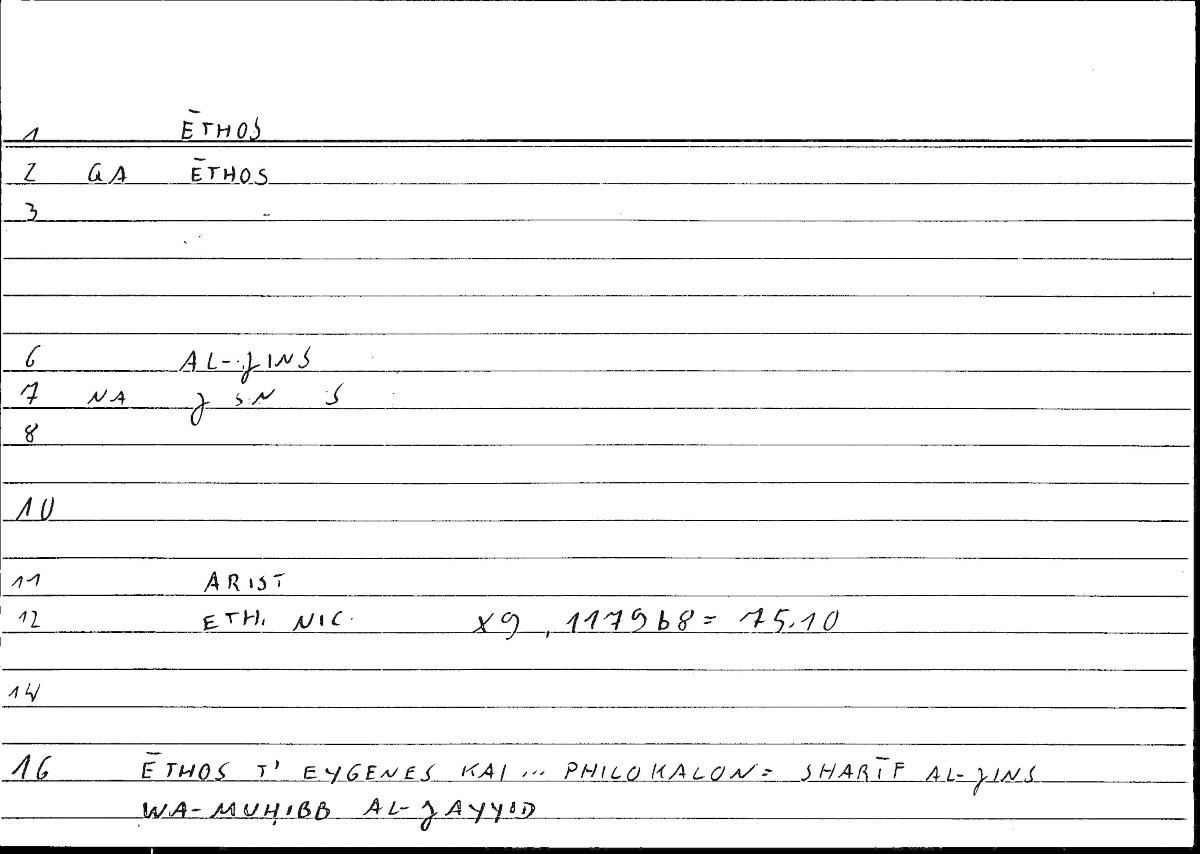 1 ĒTHOS
2 GA ĒTHOS
3
6 AL-JINS
7 NA J SN S
8
10
11 ARIST
12 ETH. NIC. X9, 1179b8 = 75.10
14
16 ĒTHOS T' EYGENES KAI ... PHILOKALON = SHARĪF AL-JINS
WA-MUḤIBB AL-JAYYID